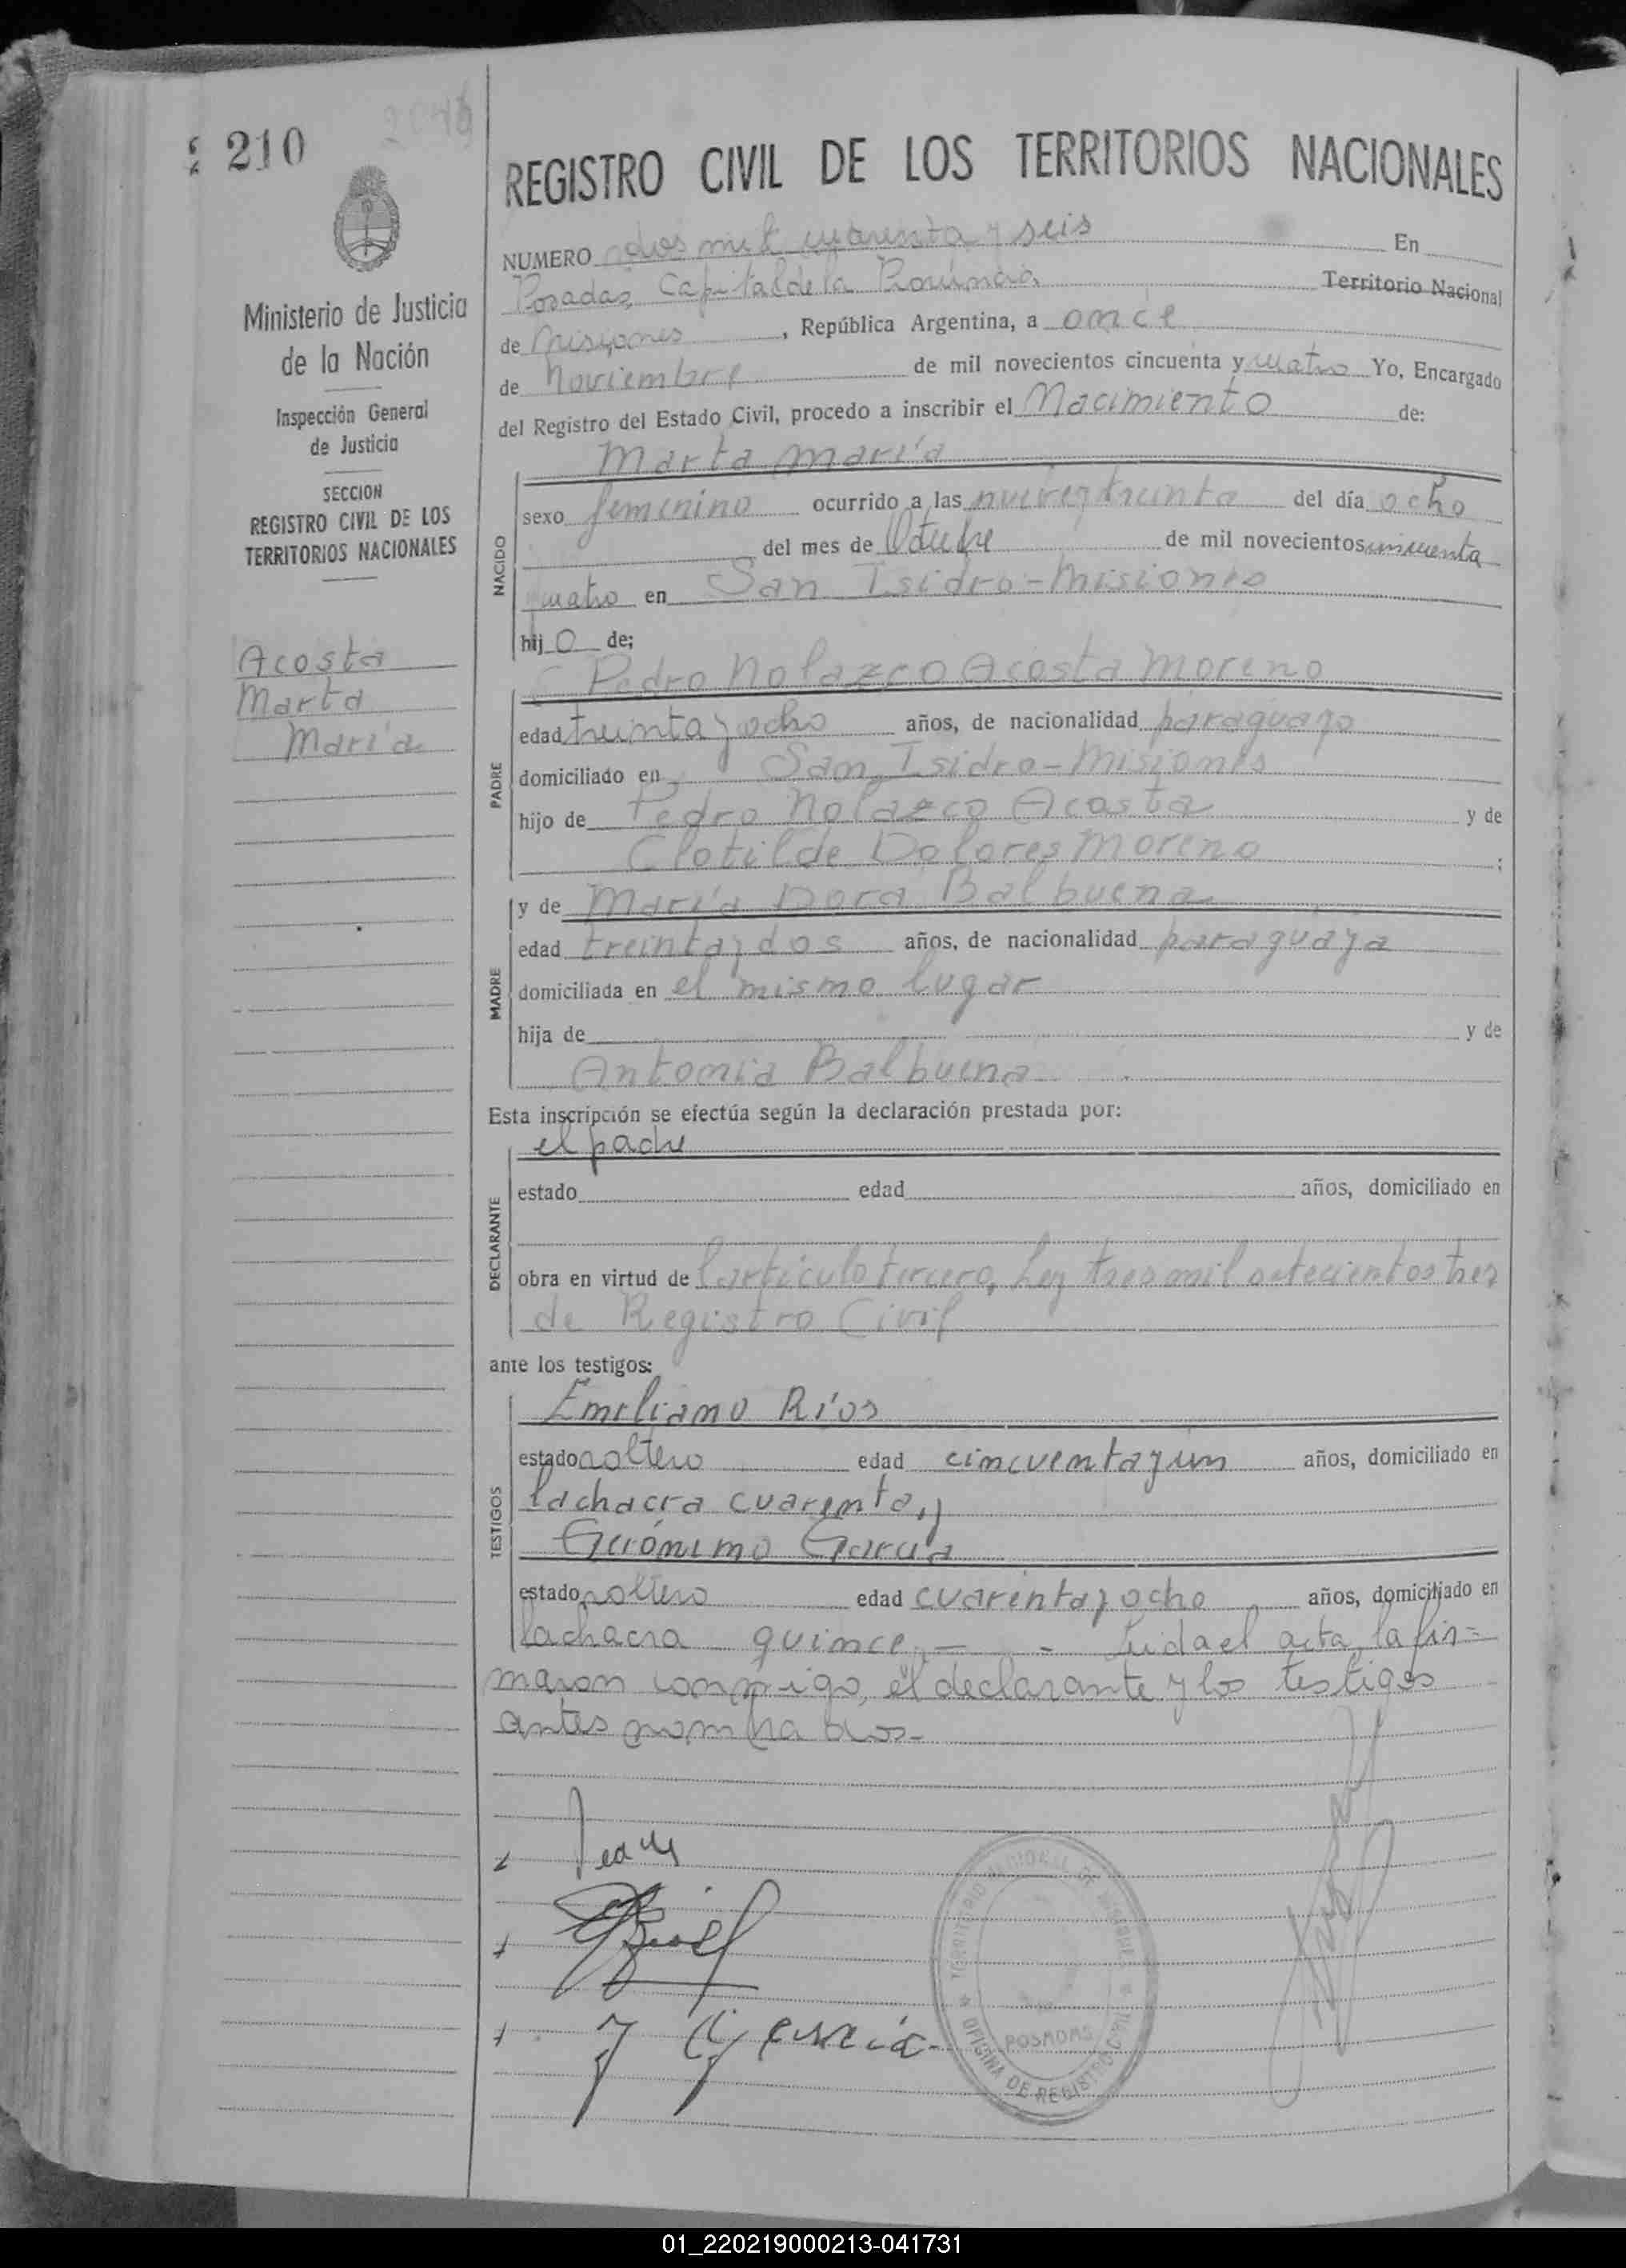 210
2046
Ministerio de Justicia
de la Nación
Inspección General
de Justicia
SECCION
REGISTRO CIVIL DE LOS
TERRITORIOS NACIONALES
Acosta
Marta
María
REGISTRO CIVIL DE LOS TERRITORIOS NACIONALES
NUMERO dos mil cuarenta y seis En
Posadas, Capital de la Provincia, Territorio Nacional
de Misiones, República Argentina, a once
de Noviembre de mil novecientos cincuenta y cuatro Yo, Encargado
del Registro del Estado Civil, procedo a inscribir el Nacimiento de:
NACIDO
Marta María
sexo femenino ocurrido a las nueve y treinta del día ocho
del mes de Octubre de mil novecientos cincuenta
cuatro en San Isidro - Misiones
hijo de;
PADRE
Pedro Nolazco Acosta Moreno
edad treinta y ocho años, de nacionalidad paraguayo
domiciliado en San Isidro - Misiones
hijo de Pedro Nolazco Acosta y de
Clotilde Dolores Moreno ;
MADRE
y de María Dora Balbuena
edad treinta y dos años, de nacionalidad paraguaya
domiciliada en el mismo lugar
hija de y de
Antonia Balbuena
Esta inscripción se efectúa según la declaración prestada por:
DECLARANTE
el padre
estado edad años, domiciliado en
obra en virtud de l artículo tercero, Ley tres mil setecientos tres
de Registro Civil
ante los testigos:
TESTIGOS
Emiliano Ríos
estado soltero edad cincuenta y un años, domiciliado en
la chacra cuarenta, y
Gerónimo García
estado soltero edad cuarenta y ocho años, domiciliado en
la chacra quince, - - Leida el acta, la fir=
maron conmigo, el declarante y los testigos
antes nombrados.-
J García
TERRITORIO NACIONAL DE MISIONES
POSADAS
OFICINA DE REGISTRO CIVIL
01_220219000213-041731